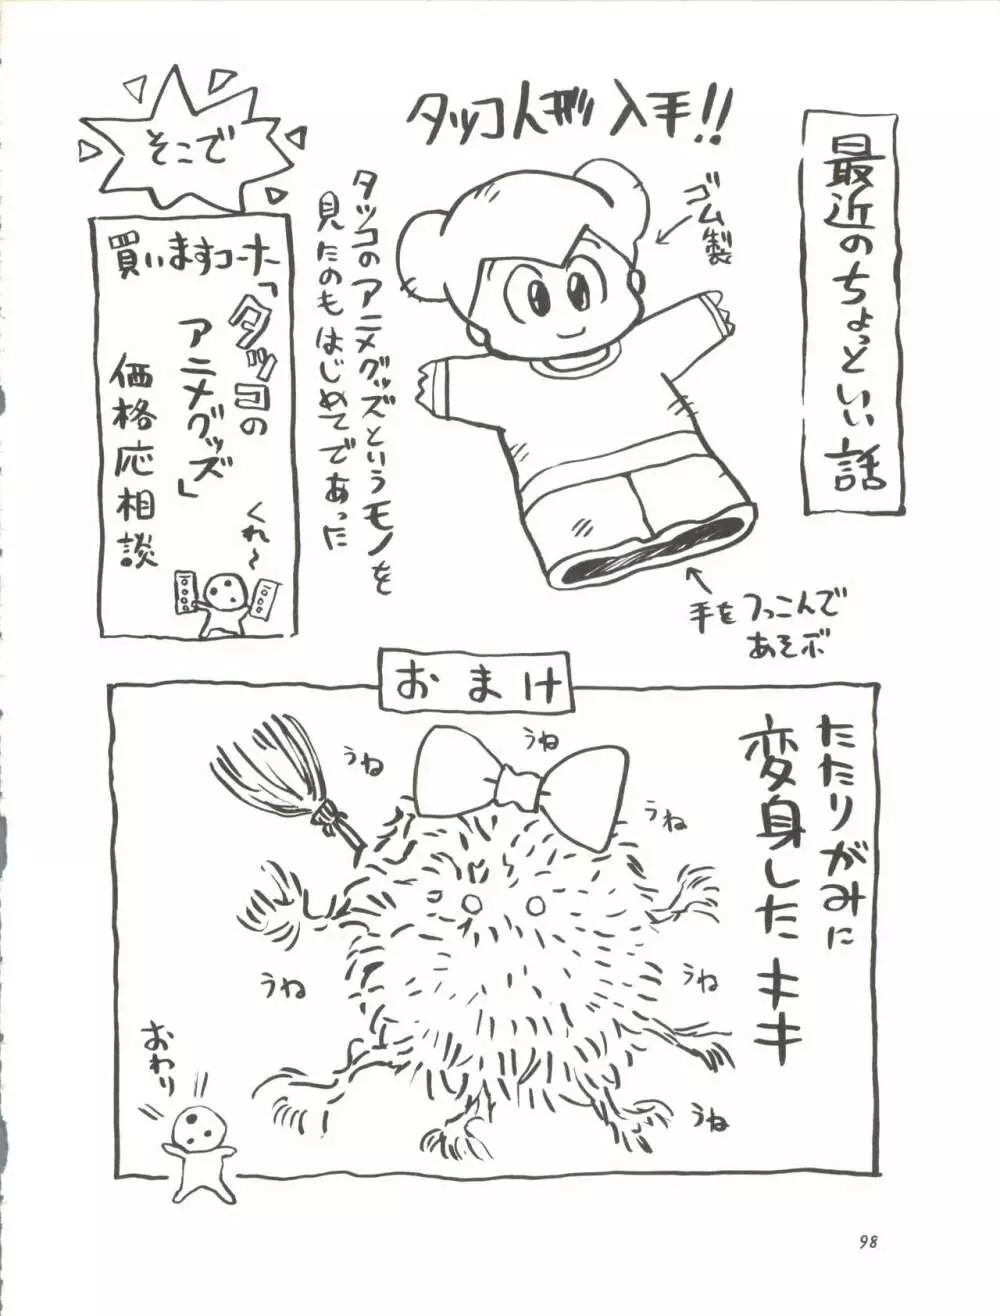 最近のちょっといい話
タッコ人形入手!!
ゴム製
タッコのアニメグッズというモノを
見たのもはじめてであった
手をつっこんで
あそボ
そこで
買いますコーナー
「タッコの
アニメグッズ」
価格応相談
くれ〜
おまけ
たたりがみに
変身したキキ
うね
うね
うね
うね
うね
うね
おわり
98